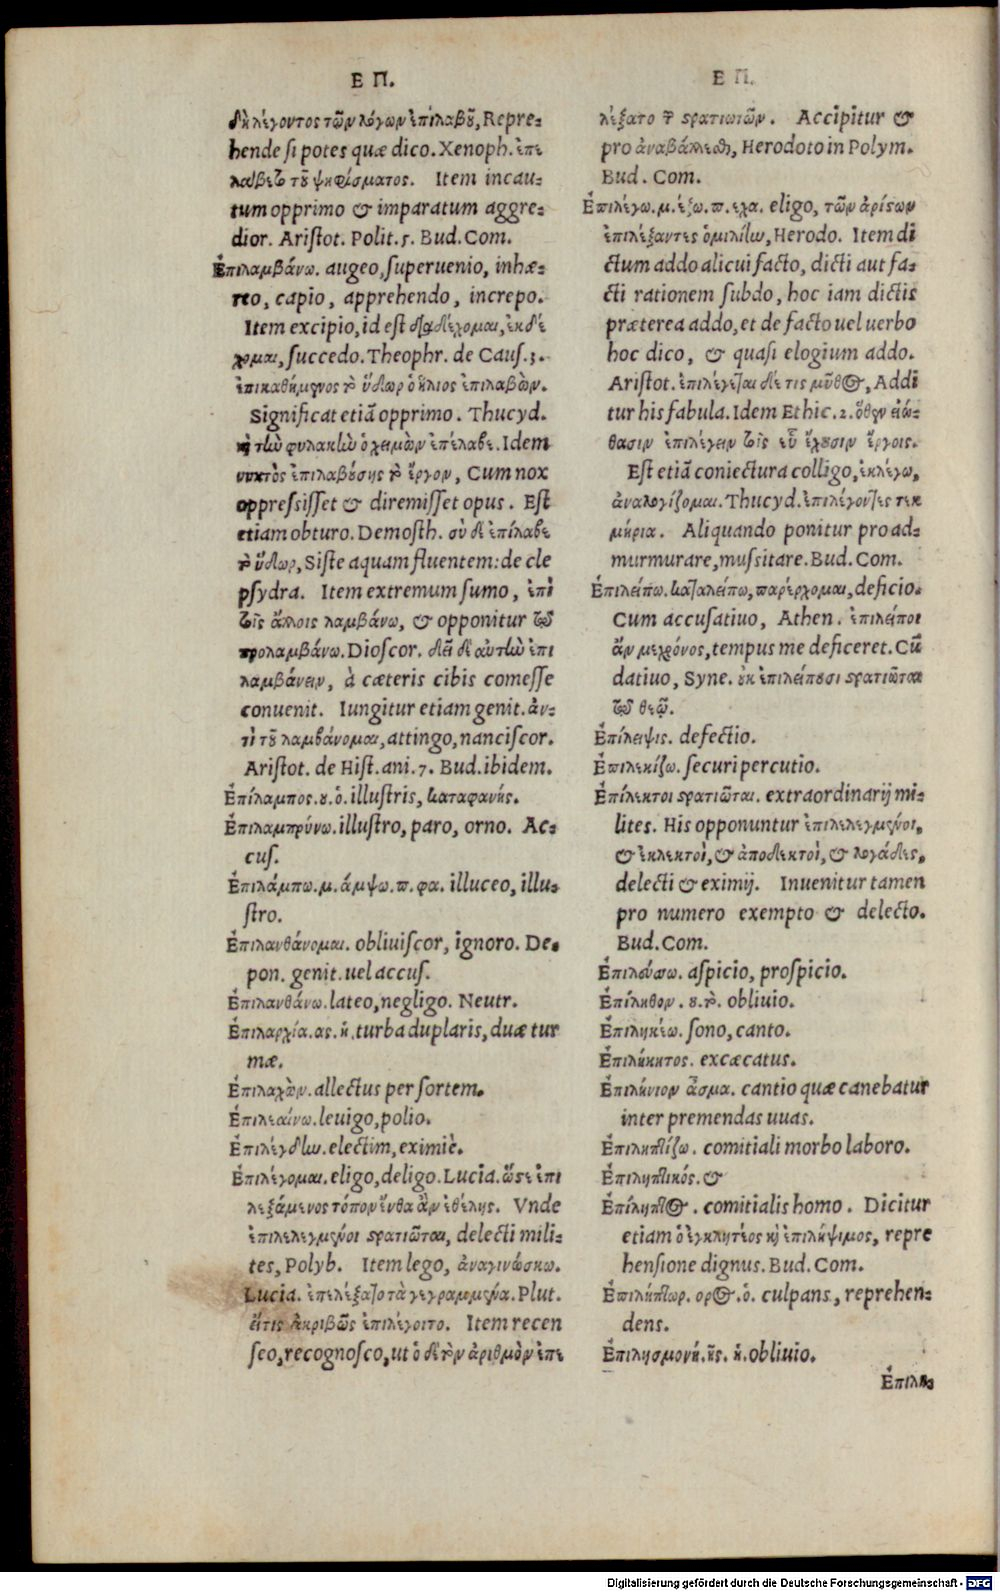 Ε Π.
δὴ λέγοντος τῶν λόγων ἐπιλαβοῦ, Repre-
hende si potes quæ dico. Xenoph. ἐπε
λάβετο τοῦ ψηφίσματος. Item incau-
tum opprimo & imparatum aggre-
dior. Aristot. Polit. 5. Bud. Com.
Ἐπιλαμβάνω. augeo, superuenio, inhæ-
reo, capio, apprehendo, increpo.
Item excipio, id est διαδέχομαι, ἐκδέ
χομαι, succedo. Theophr. de Caus. 3.
ἐπικαθήμενος τὸ ὕδωρ ὁ ἥλιος ἐπιλαβὼν.
Significat etiā opprimo. Thucyd.
καὶ τὼ φυλακὼ ὁ χειμὼν ἐπέλαβε. Idem
νυκτὸς ἐπιλαβούσης τὸ ἔργον, Cum nox
oppressisset & diremisset opus. Est
etiam obturo. Demosth. σὺ δὲ ἐπίλαβε
τὸ ὕδωρ, Siste aquam fluentem: de cle
psydra. Item extremum sumo, ἐπὶ
τοῖς ἄλλοις λαμβάνω, & opponitur τῷ
προλαμβάνω. Dioscor. δεῖ δὲ αὐτὼ ἐπι
λαμβάνειν, à cæteris cibis comesse
conuenit. Iungitur etiam genit. ἀν-
τὶ τοῦ λαμβάνομαι, attingo, nanciscor.
Aristot. de Hist. ani. 7. Bud. ibidem.
Ἐπίλαμπος. ου. ὁ. illustris, καταφανής.
Ἐπιλαμπρύνω. illustro, paro, orno. Ac-
cus.
Ἐπιλάμπω. μ. άμψω. π. φα. illuceo, illu-
stro.
Ἐπιλανθάνομαι. obliuiscor, ignoro. De-
pon. genit. uel accus.
Ἐπιλανθάνω. lateo, negligo. Neutr.
Ἐπιλαρχία. ας. ἡ. turba duplaris, duæ tur
mæ.
Ἐπιλαχὼν. allectus per sortem.
Ἐπιλεαίνω. leuigo, polio.
Ἐπιλέγδω. electim, eximiè.
Ἐπιλέγομαι. eligo, deligo. Lucia. ὥστε ἐπι
λεξάμενος τόπον ἔνθα ἂν ἐθέλῃς. Vnde
ἐπιλελεγμένοι στρατιῶται, delecti mili-
tes, Polyb. Item lego, ἀναγινώσκω.
Lucia. ἐπελέξατο τὰ γεγραμμένα. Plut.
εἴτις ἀκριβῶς ἐπιλέγοιτο. Item recen
seo, recognosco, ut ὁ δὲ τὸν ἀριθμὸν ἐπε
Ε Π.
λέξατο τῶν στρατιωτῶν. Accipitur &
pro ἀναβάλλεσθαι, Herodoto in Polym.
Bud. Com.
Ἐπιλέγω. μ. έξω. π. εχα. eligo, τῶν ἀρίστων
ἐπιλέξαντες ὁμιλίω, Herodo. Item di
ctum addo alicui facto, dicti aut fa-
cti rationem subdo, hoc iam dictis
præterea addo, et de facto uel uerbo
hoc dico, & quasi elogium addo.
Aristot. ἐπιλέγεται δέ τις μῦθος, Addi
tur his fabula. Idem Ethic. 2. ὅθεν εἰώ-
θασιν ἐπιλέγειν τοῖς εὖ ἔχουσιν ἔργοις.
Est etiā coniectura colligo, ἐκλέγω,
ἀναλογίζομαι. Thucyd. ἐπιλέγοντες τεκ
μήρια. Aliquando ponitur pro ad-
murmurare, mussitare. Bud. Com.
Ἐπιλείπω. καταλείπω, παρέρχομαι, deficio.
Cum accusatiuo, Athen. ἐπιλείποι
ἄν με χρόνος, tempus me deficeret. Cū
datiuo, Syne. οὐκ ἐπιλείπουσι στρατιῶται
τῷ θεῷ.
Ἐπίλειψις. defectio.
Ἐπιλεκίζω. securi percutio.
Ἐπίλεκτοι στρατιῶται. extraordinarij mi-
lites. His opponuntur ἐπιλελεγμένοι,
& ἐκλεκτοὶ, & ἀποδεκτοὶ, & λογάδες,
delecti & eximij. Inuenitur tamen
pro numero exempto & delecto.
Bud. Com.
Ἐπιλεύσσω. aspicio, prospicio.
Ἐπίληθον. ου. τὸ. obliuio.
Ἐπιληκέω. sono, canto.
Ἐπιλήκητος. excæcatus.
Ἐπιλήνιον ᾆσμα. cantio quæ canebatur
inter premendas uuas.
Ἐπιληπτίζω. comitiali morbo laboro.
Ἐπιληπτικός. &
Ἐπίληπτος. comitialis homo. Dicitur
etiam ὁ ἐγκλητέος καὶ ἐπιλήψιμος, repre
hensione dignus. Bud. Com.
Ἐπιλήπτωρ. ορος. ὁ. culpans, reprehen-
dens.
Ἐπιλησμονή. ῆς. ἡ. obliuio.
Ἐπιλη-
Digitalisierung gefördert durch die Deutsche Forschungsgemeinschaft - DFG